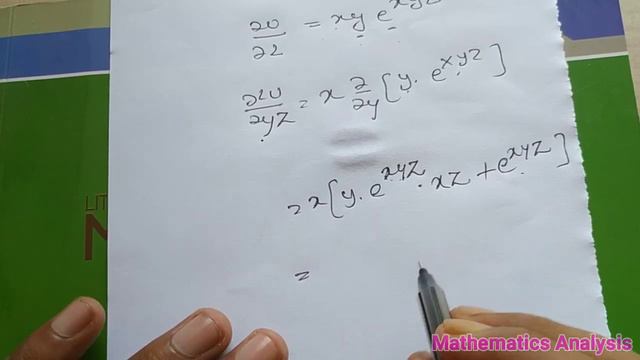 ∂u/∂z = xy e^xyz
∂²u/∂yz = x ∂/∂y [y. e^xyz]
= x[y. e^xyz . xz + e^xyz]
=
LIT
M
Mathematics Analysis